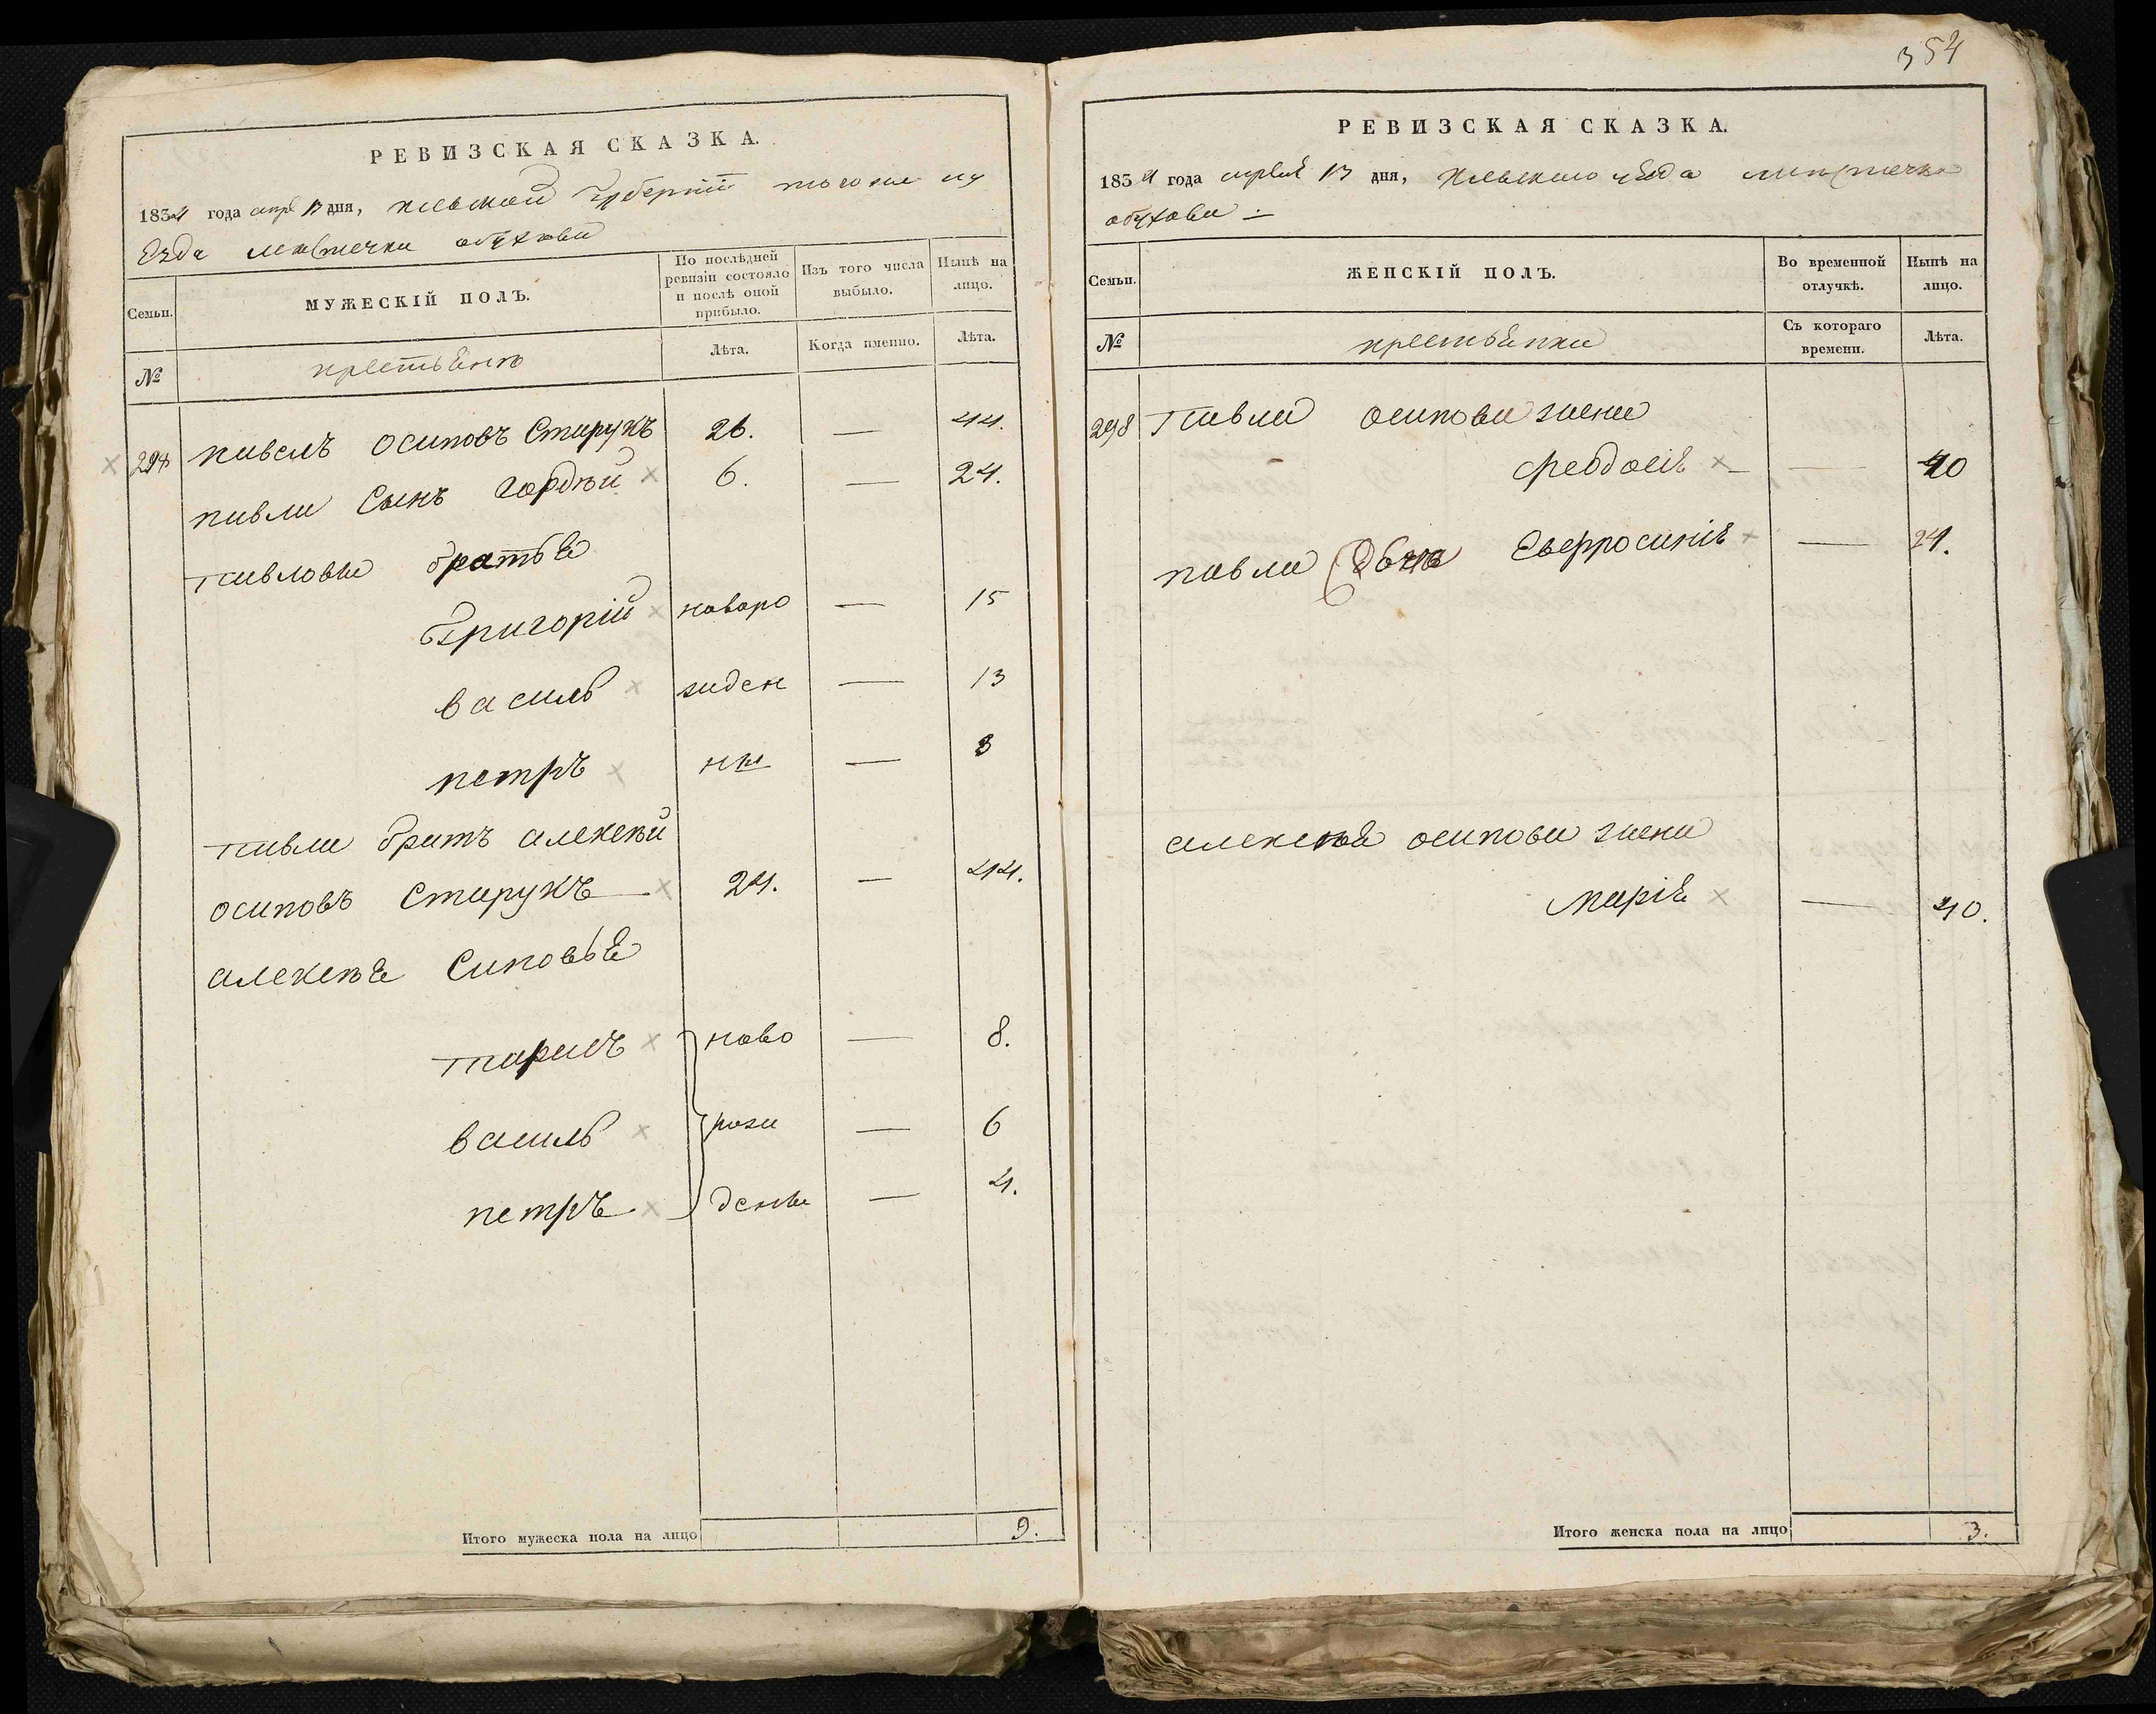 РЕВИЗСКАЯ СКАЗКА.
1834 года апре 13 дня, Киевской Губерніи того же уѣ
Езда местечка обухова
Семьи. МУЖЕСКІЙ ПОЛЪ. По послѣдней ревизіи состояло и послѣ оной прибыло. Изъ того числа выбыло. Нынѣ на лицо.
№ крестьяне Лѣта. Когда именно. Лѣта.
павелъ осиповъ Старукъ 26. — 44.
павла Сынъ гордѣй 6. — 24.
павловы братья
Григорій новоро — 15
василь жден — 13
петръ ны — 3
павла братъ алексѣй
осиповъ Старукъ 24. — 44.
алексѣя Синовья
тарасъ ново — 8.
василь рож — 6
петръ дены — 4.
Итого мужеска пола на лицо 9.
354
РЕВИЗСКАЯ СКАЗКА.
1834 года апреля 13 дня, Киевского уезда местечка
обухова
Семьи. ЖЕНСКІЙ ПОЛЪ. Во временной отлучкѣ. Нынѣ на лицо.
№ крестьянки Съ котораго времени. Лѣта.
298 павла осипова жена
феодосія — 40
павла дочь Евфросинія — 24.
алексея осипова жена
марія — 40.
Итого женска пола на лицо 3.